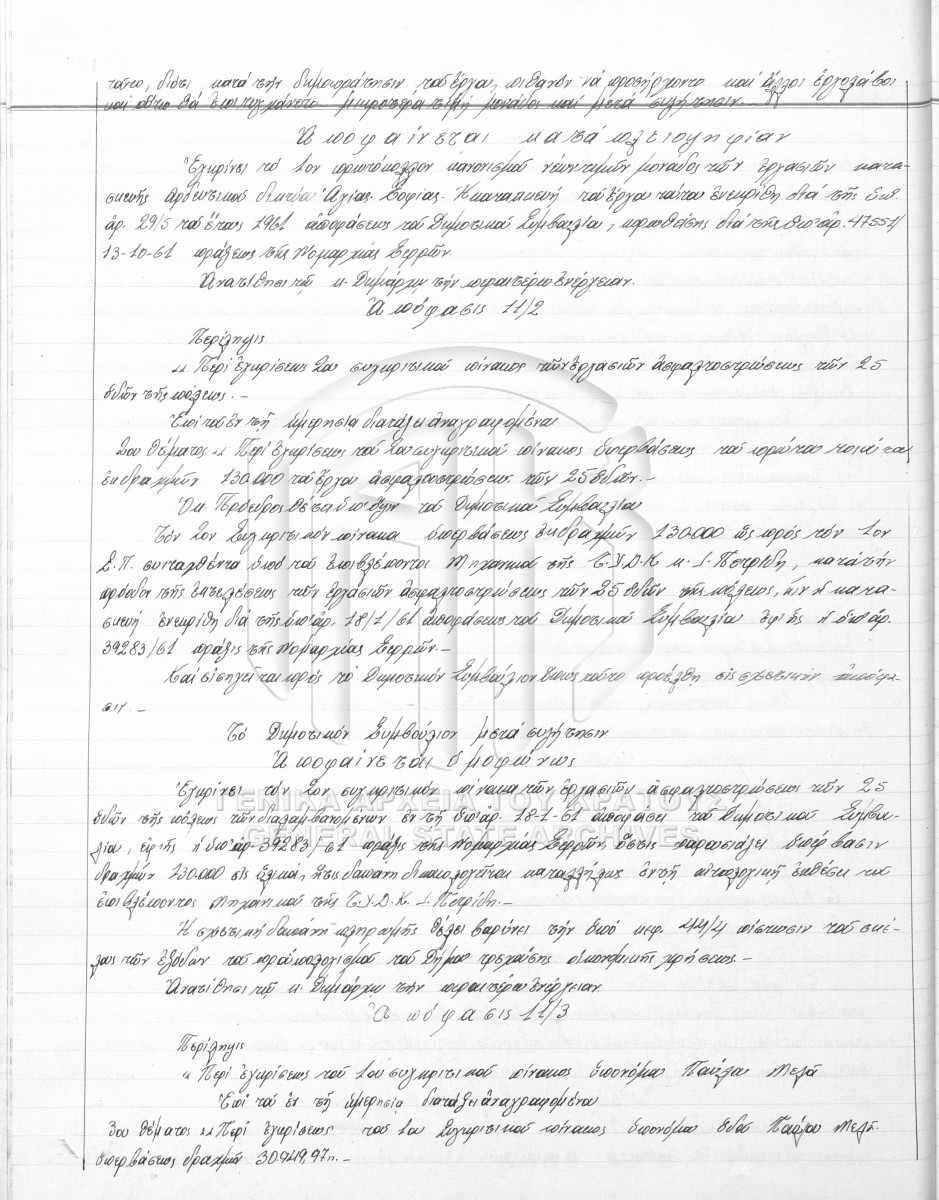 τοῦτο, διότι κατά τήν δημοπράτησιν τοῦ ἔργου, πιθανόν νά προσήρχοντο καί ἄλλοι ἐργολάβοι
καί οὕτω θά ἐπετυγχάνετο μικροτέρα τιμή μονάδος καί μετά συζήτησιν.-
Ἀποφαίνεται κατά πλειοψηφίαν
Ἐγκρίνει τό 1ον πρωτόκολλον κανονισμοῦ νέων τιμῶν μονάδος τῶν ἐργασιῶν κατα-
σκευῆς ἀρδευτικοῦ δικτύου Ἁγίας Σοφίας. Ἡ κατασκευή τοῦ ἔργου τούτου ἐνεκρίθη διά τῆς ὑπ'
ἀρ. 29/5 τοῦ ἔτους 1961 ἀποφάσεως τοῦ Δημοτικοῦ Συμβουλίου, κυρωθείσης διά τῆς ὑπ' ἀρ. 47554/
13-10-61 πράξεως τῆς Νομαρχίας Σερρῶν.
Ἀνατίθησι τῷ κ. Δημάρχῳ τήν περαιτέρω ἐνέργειαν.
Ἀπόφασις 11/2
Περίληψις
"Περί ἐγκρίσεως 2ου συγκριτικοῦ πίνακος τῶν ἐργασιῶν ἀσφαλτοστρώσεως τῶν 25
ὁδῶν τῆς πόλεως.-
Ἐπί τοῦ ἐν τῇ ἡμερησίᾳ διατάξει ἀναγραφομένου
2ου θέματος "Περί ἐγκρίσεως τοῦ 2ου συγκριτικοῦ πίνακος ὑπερβάσεως τοῦ πρώτου τοιούτου
ἐκ δραχμῶν 130.000 τοῦ ἔργου ἀσφαλτοστρώσεως τῶν 25 ὁδῶν.-
Ὁ κ. Πρόεδρος θέτει ὑπ' ὄψιν τοῦ Δημοτικοῦ Συμβουλίου
Τόν 2ον Συγκριτικόν πίνακα ὑπερβάσεως ἐκ δραχμῶν 130.000 ὡς πρός τόν 1ον
Σ.Π. συνταχθέντα ὑπό τοῦ ἐπιβλέποντος Μηχανικοῦ τῆς Τ.Υ.Δ.Κ κ. Ι. Πετρίδη, κατά τήν
πρόοδον τῆς ἐκτελέσεως τῶν ἐργασιῶν ἀσφαλτοστρώσεως τῶν 25 ὁδῶν τῆς πόλεως, ὧν ἡ κατα-
σκευή ἐνεκρίθη διά τῆς ὑπ' ἀρ. 18/1/61 ἀποφάσεως τοῦ Δημοτικοῦ Συμβουλίου ἐφ' ἧς ἡ ὑπ' ἀρ.
39283/61 πρᾶξις τῆς Νομαρχίας Σερρῶν.-
Καί εἰσηγεῖται πρός τό Δημοτικόν Συμβούλιον ὅπως τοῦτο προέλθῃ εἰς σχετικήν ἀπόφα-
σιν.-
Τό Δημοτικόν Συμβούλιον μετά συζήτησιν
Ἀποφαίνεται ὁμοφώνως
Ἐγκρίνει τόν 2ον συγκριτικόν πίνακα τῶν ἐργασιῶν ἀσφαλτοστρώσεως τῶν 25
ὁδῶν τῆς πόλεως τῶν διαλαμβανομένων ἐν τῇ ὑπ' ἀρ. 18-1-61 ἀποφάσει τοῦ Δημοτικοῦ Συμβου-
λίου, ἐφ' ἧς ἡ ὑπ' ἀρ. 39283/61 πρᾶξις τῆς Νομαρχίας Σερρῶν, ὅστις παρουσιάζει ὑπέρβασιν
δραχμῶν 130.000 εἰς ὑλικά, ἥτις δαπάνη δικαιολογεῖται καταλλήλως ἐν τῇ αἰτιολογικῇ ἐκθέσει τοῦ
ἐπιβλέποντος Μηχανικοῦ τῆς Τ.Υ.Δ.Κ. Ι. Πετρίδη.-
Ἡ σχετική δαπάνη πληρωμῆς θέλει βαρύνει τήν ὑπό κεφ. 44/4 πίστωσιν τοῦ σκέ-
λους τῶν ἐξόδων τοῦ προϋπολογισμοῦ τοῦ Δήμου τρεχούσης οἰκονομικῆς χρήσεως.-
Ἀνατίθησι τῷ κ. Δημάρχῳ τήν περαιτέρω ἐνέργειαν
Ἀπόφασις 11/3
Περίληψις
"Περί ἐγκρίσεως τοῦ 1ου συγκριτικοῦ πίνακος ὑπονόμου Παύλου Μελᾶ
Ἐπί τοῦ ἐν τῇ ἡμερησίᾳ διατάξει ἀναγραφομένου
3ου θέματος "Περί ἐγκρίσεως τοῦ 1ου Συγκριτικοῦ πίνακος ὑπονόμου ὁδοῦ Παύλου Μελᾶ
ὑπερβάσεως δραχμῶν 30.949,97π.-
ΓΕΝΙΚΑ ΑΡΧΕΙΑ ΤΟΥ ΚΡΑΤΟΥΣ
GENERAL STATE ARCHIVES